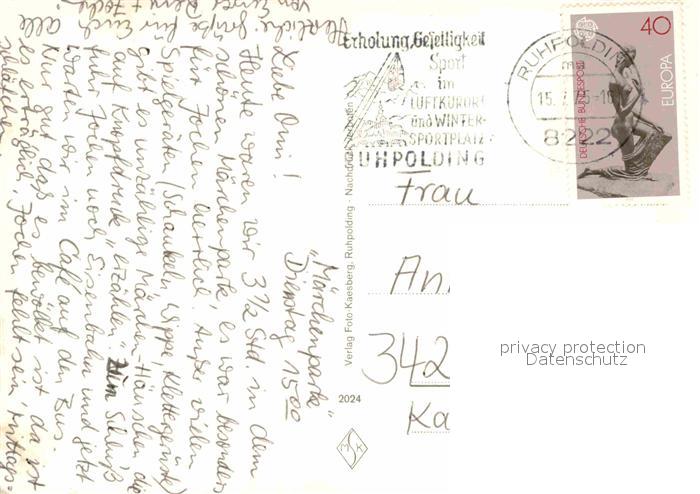 "Märchenpark"
Dienstag 15⁰⁰
Liebe Omi!
Heute waren wir 3½ Std. in dem
schönen Märchenpark, es war besonders
für Jochen herrlich. Außer vielen
Spielgeräten (Schaukeln, Wippe, Klettergerüste)
gibt es unzählige Märchen-Häuschen die
auf Knopfdruck "erzählen". Zum Schluß
fuhr Jochen noch Eisenbahn und jetzt
warten wir im Café auf den Bus.
Nur gut daß es bewölkt ist da ist
es erträglich. Jochen fehlt sein Mittags-
schläfchen.
Herzliche Grüße für Euch alle
von Eurer
Verlag Foto-Kaesberg, Ruhpolding - Nachdruck verboten
2024
MSK
Erholung, Geselligkeit
Sport
im
LUFTKURORT
und WINTER-
SPORTPLATZ
UHPOLDING
RUHPOLDING
15.
8222
40
DEUTSCHE BUNDESPOST
EUROPA
CEPT
Frau
An
342
Ka
privacy protection
Datenschutz